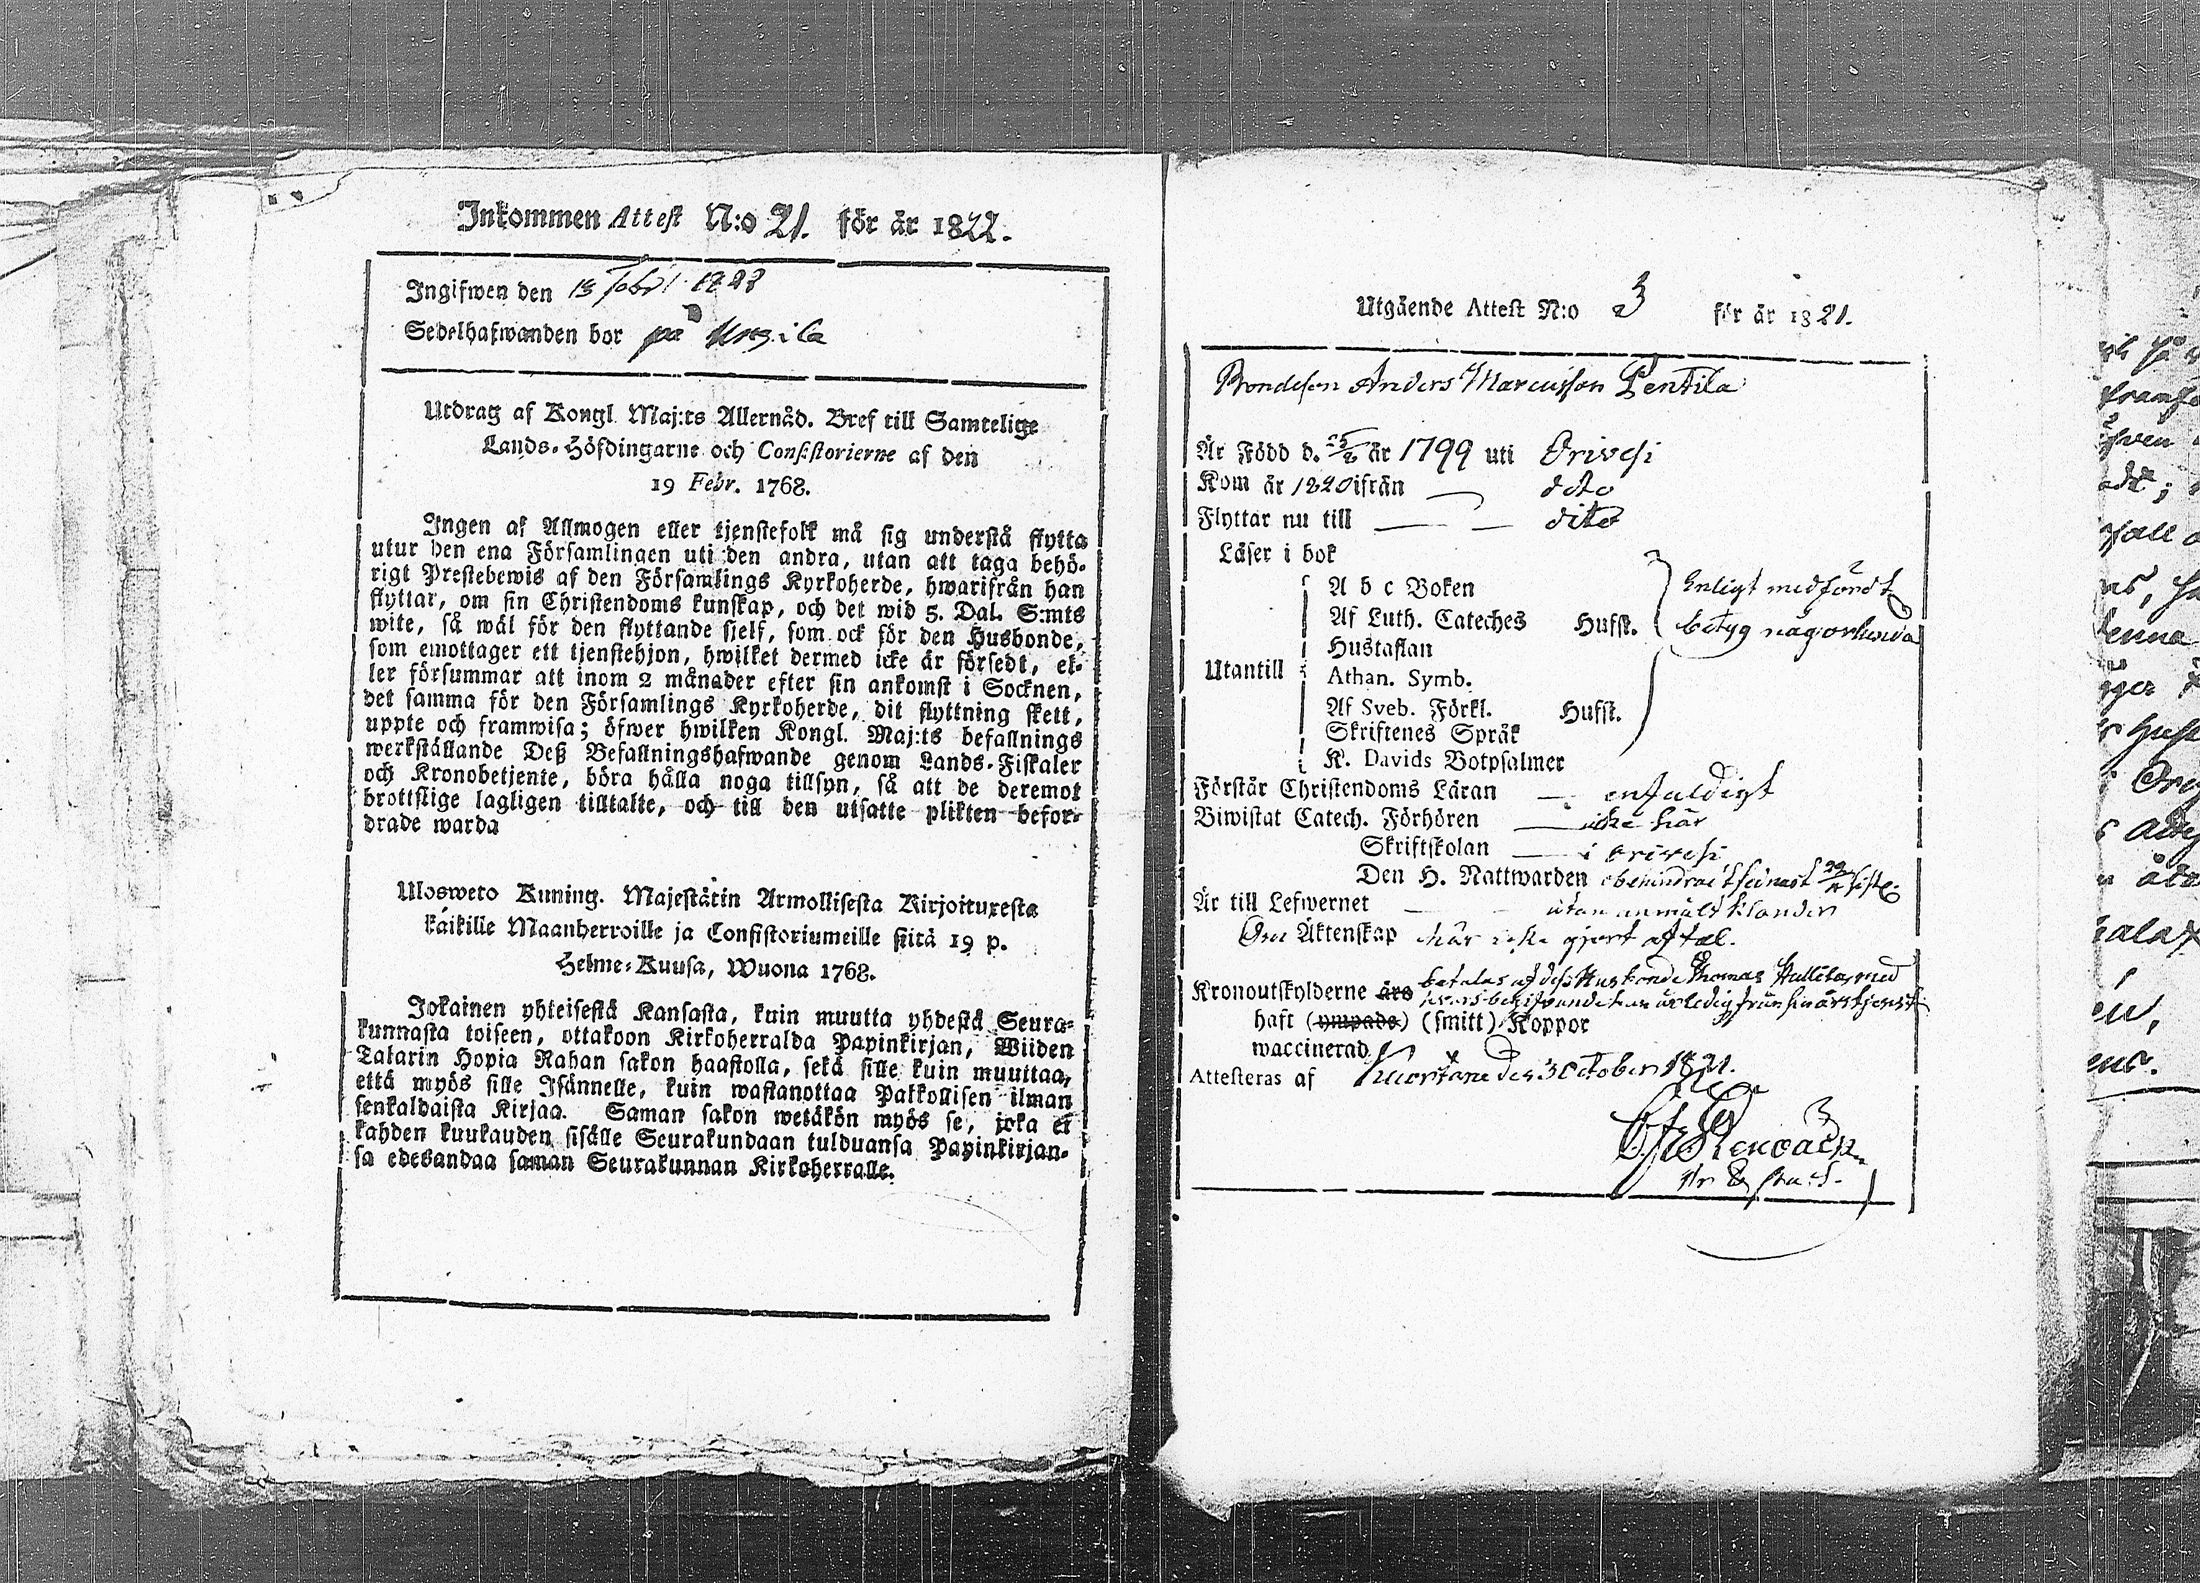 Inkommen Attest N:o 21. för år 1822.
Ingifwen den 13 Febr 1822
Sedelhafwanden bor på
Utdrag af Kongl Maj:ts Allernåd. Bref till Samtelige
Lands-Höfdingarne och Consistorierne af den
19 Febr. 1768.
Ingen af Allmogen eller tjenstefolk må sig understå flytta
utur den ena Församlingen uti den andra, utan att taga behö-
rigt Prestebewis af den Församlings Kyrkoherde, hwarifrån han
flyttar, om sin Christendoms kunskap, och det wid 5. Dal. S:mts
wite, så wäl för den flyttande sjelf, som ock för den Husbonde,
som emottager ett tjenstehjon, hwilket dermed icke är försedt, el-
ler försummar att inom 2 månader efter sin ankomst i Socknen,
det samma för den Församlings Kyrkoherde, dit flyttning skett,
uppte och framwisa; öfwer hwilken Kongl. Maj:ts befallnings
werkställande Deß Befallningshafwande genom Lands-Fiskaler
och Kronobetjente, böra hålla noga tillsyn, så att de deremot
brottslige lagligen tilltalte, och till den utsatte plikten befor-
drade warda
Ulosweto Kuning. Majestätin Armollisesta Kirjoituxesta
kaikille Maanherroille ja Consistoriumeille siitä 19 p.
Helme-Kuusa, Wuona 1768.
Jokainen yhteisestä Kansasta, kuin muutta yhdestä Seura-
kunnasta toiseen, ottakoon Kirkoherralda Papinkirjan, Wiiden
Talarin Hopia Rahan sakon haastolla, sekä sille kuin muuttaa,
että myös sille Isännelle, kuin wastanottaa Palkollisen ilman
senkaldaista Kirjaa. Saman sakon wetäkön myös se, joka ei
kahden kuukauden sisälle Seurakundaan tulduansa Papinkirjan-
sa edesandaa saman Seurakunnan Kirkoherralle.
Utgående Attest N:o 3 för år 1821.
Bondeson Anders Marcusson Pentila
Är Född d. 25/8 år 1799 uti Orivesi
Kom år 1820 ifrån dito
Flyttar nu till dito
Läser i bok
A b c Boken
Enligt medfördt
Af Luth. Cateches Hufst.
betyg någorlunda
Hustaflan
Utantill
Athan. Symb.
Af Sveb. Förkl. Hufst.
Skriftenes Språk
K. Davids Botpsalmer
Förstår Christendoms Läran enfaldigt
Biwistat Catech. Förhören icke här
Skriftskolan i Orivesi
Den H. Nattwarden obehindrat senast
Är till Lefwernet utan anmäldt klander
Om Äktenskap här icke gjort aftal.
betalas af dess Husbonde Thomas
Kronoutskylderne äro
haft (ympade) (smitt) Koppor
waccinerad
Attesteras af Kuortane den 3 October 1821.